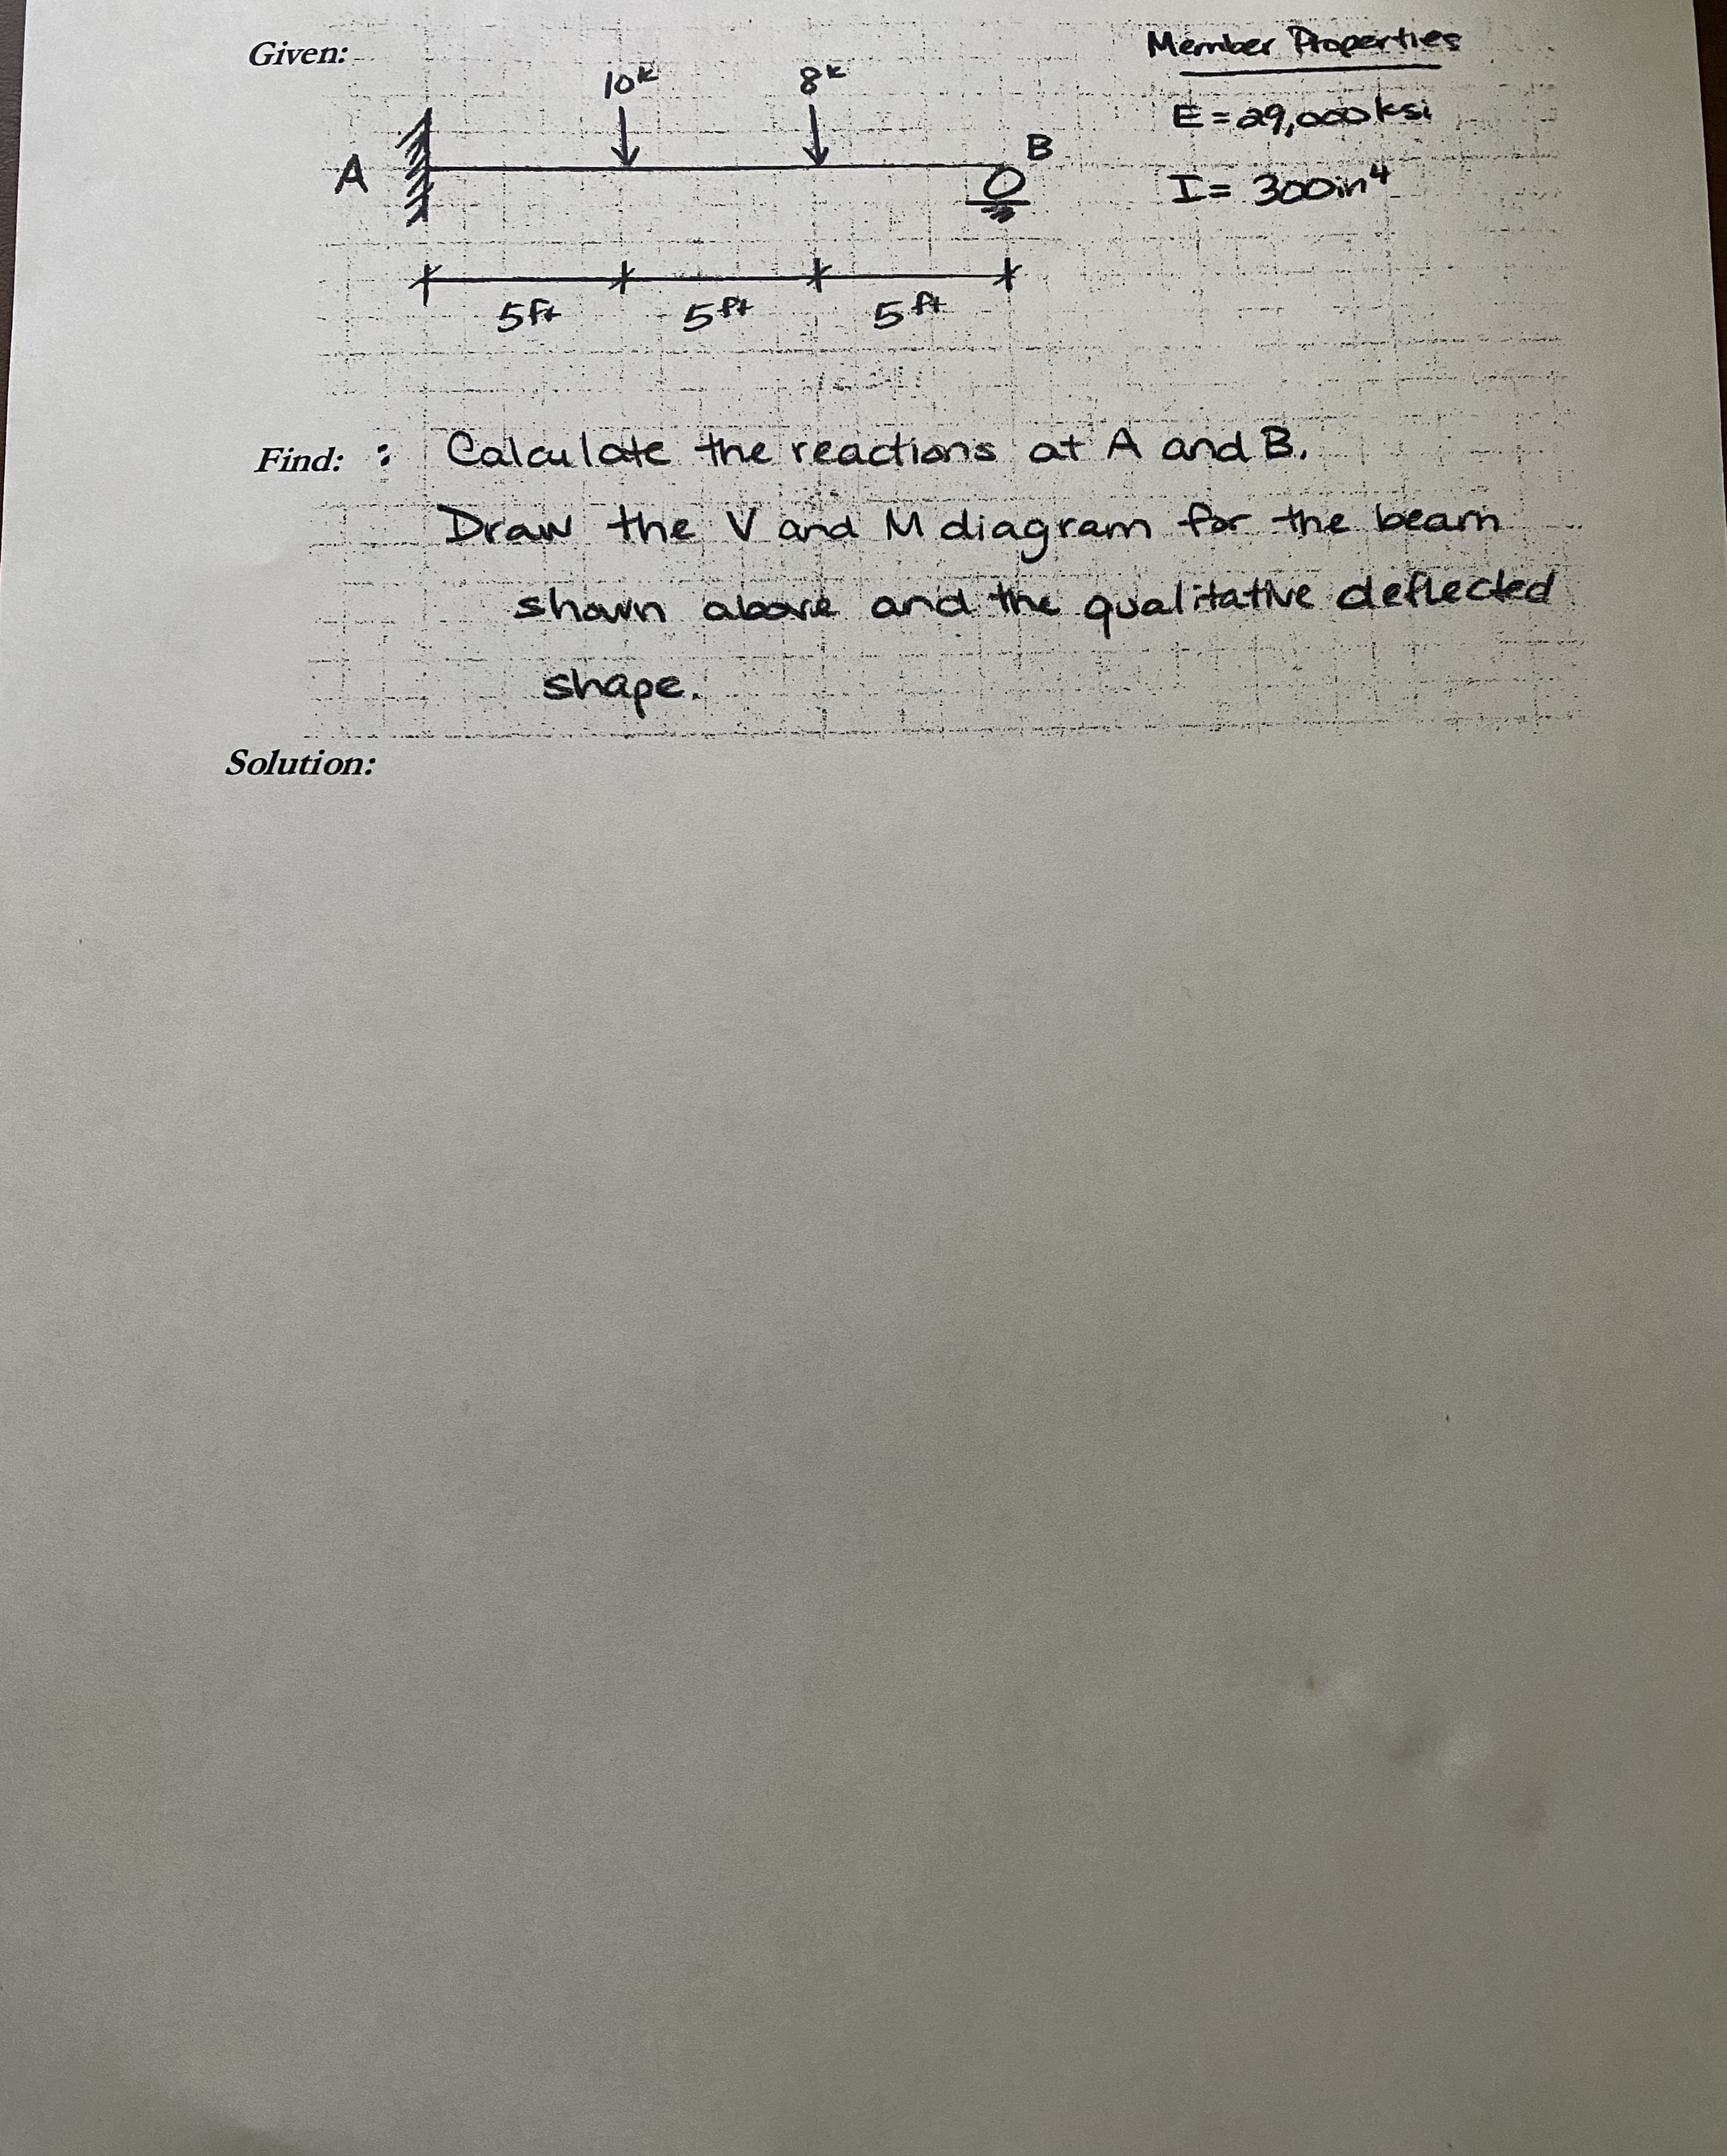 Given:
Member Properties
10k 8k
E = 29,000 ksi
A B
I = 300in⁴
5ft 5ft 5ft
Find: : Calculate the reactions at A and B.
Draw the V and M diagram for the beam
shown above and the qualitative deflected
shape.
Solution: